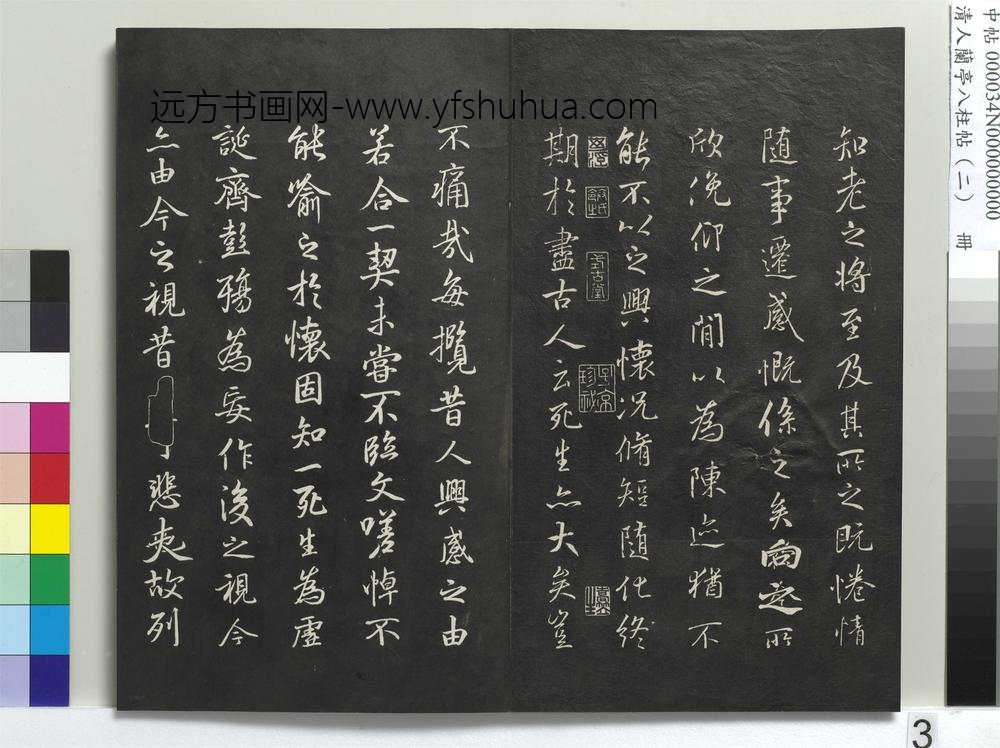 知老之將至及其所之既惓情
隨事遷感慨係之矣向之所
欣俛仰之閒以為陳迹猶不
能不以之興懷況脩短隨化終
期於盡古人云死生亦大矣豈
不痛哉每攬昔人興感之由
若合一契未嘗不臨文嗟悼不
能喻之於懷固知一死生為虛
誕齊彭殤為妄作後之視今
亦由今之視昔
悲夫故列
远方书画网-www.yfshuhua.com
中帖 000034N000000000
清人蘭亭八柱帖（二） 冊
3